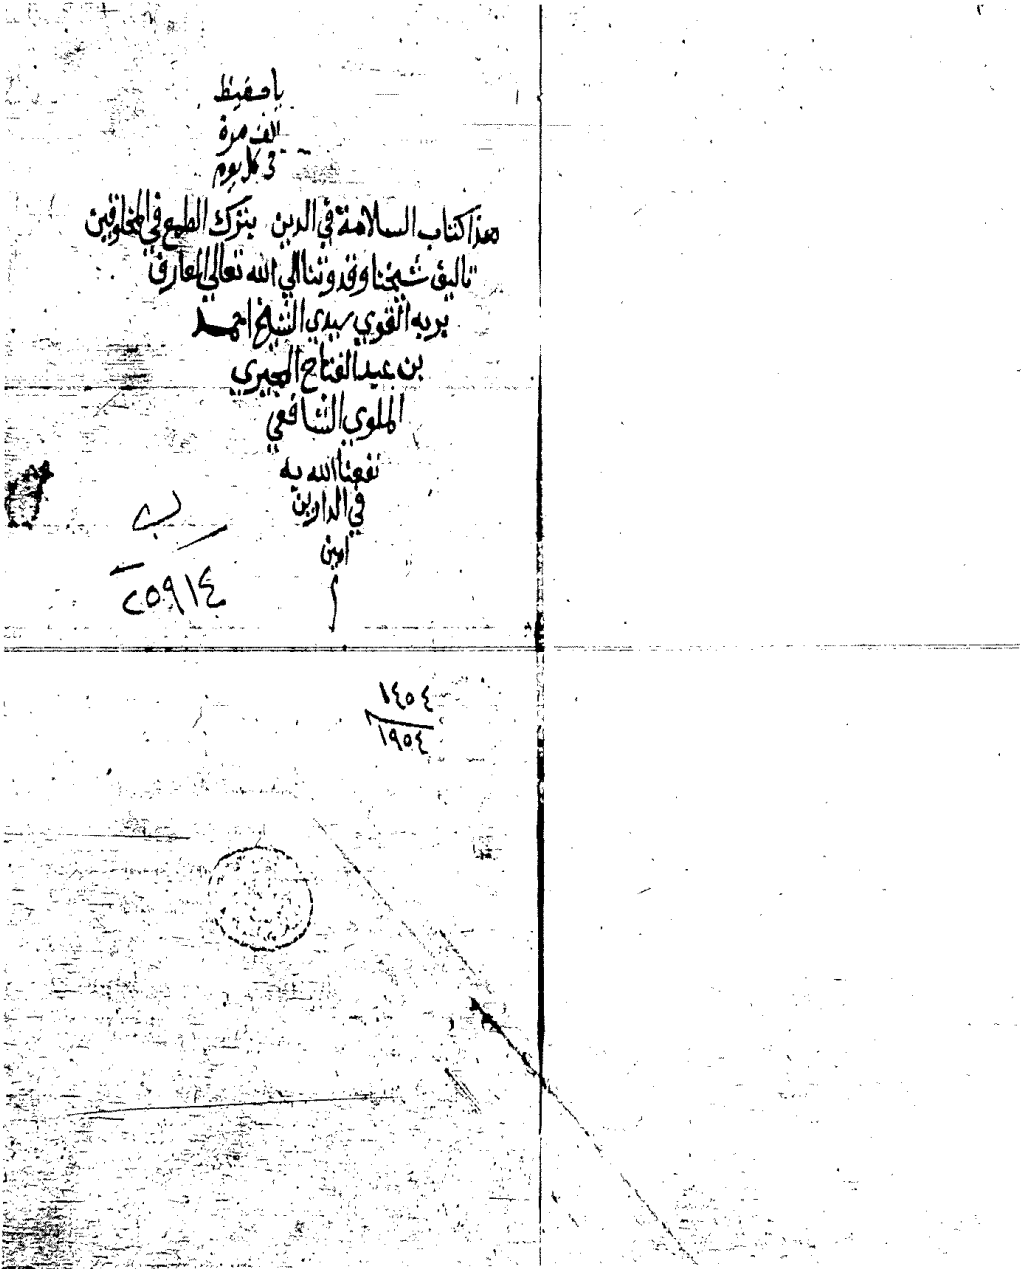 ٢
يا حفيظ
الف مرة
في كل يوم
هذا كتاب السلامة في الدين بترك الطمع في المخلوقين
تاليف شيخنا وقدوتنا الي الله تعالي العارف
بربه القوي سيدي الشيخ احمد
بن عبد الفتاح المجيري
الملوي الشافعي
نفعنا الله به
في الدارين
امين
م
ب
٢٥٩١٤
١٤٥٤
١٩٥٤